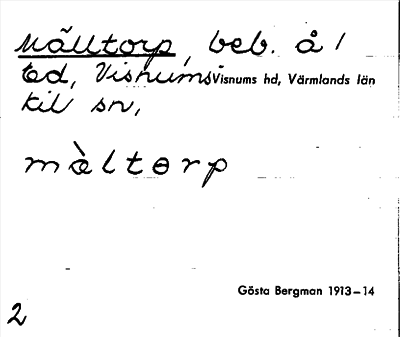 Mälltorp, beb. å 1
td, Visnums Visnums hd, Värmlands län
kil sn,
màltorp
Gösta Bergman 1913–14
2